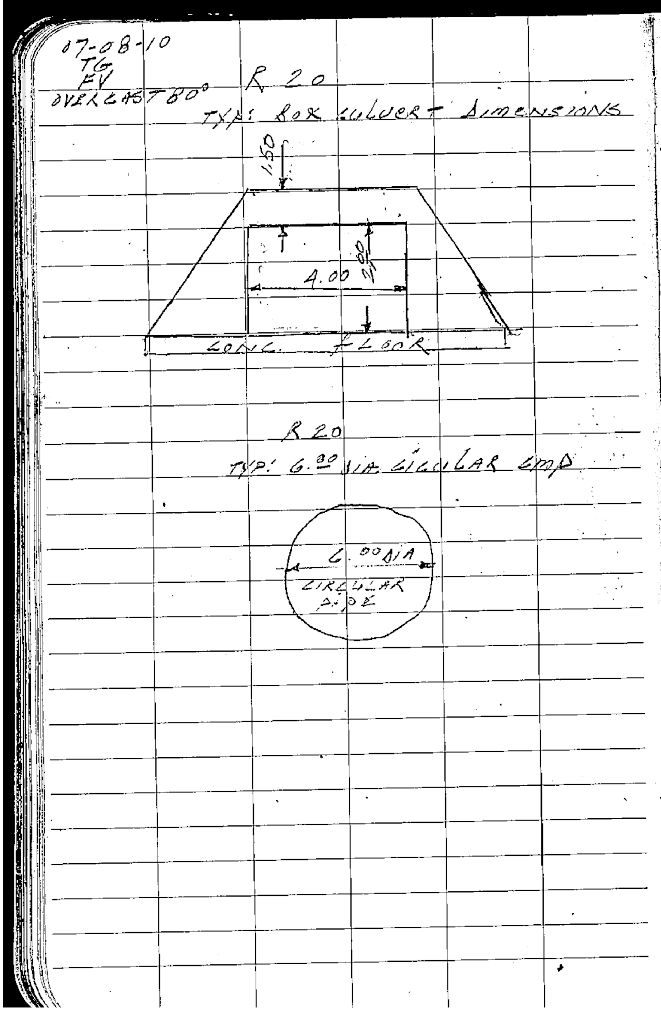 07-08-10
TG
FV
OVERCAST 80°
R 20
TYP: BOX CULVERT DIMENSIONS
1.50
4.00
CONC. FLOOR
R 20
TYP: 6.00 DIA CICULAR CMP
6.00 DIA
CIRCULAR
PIPE